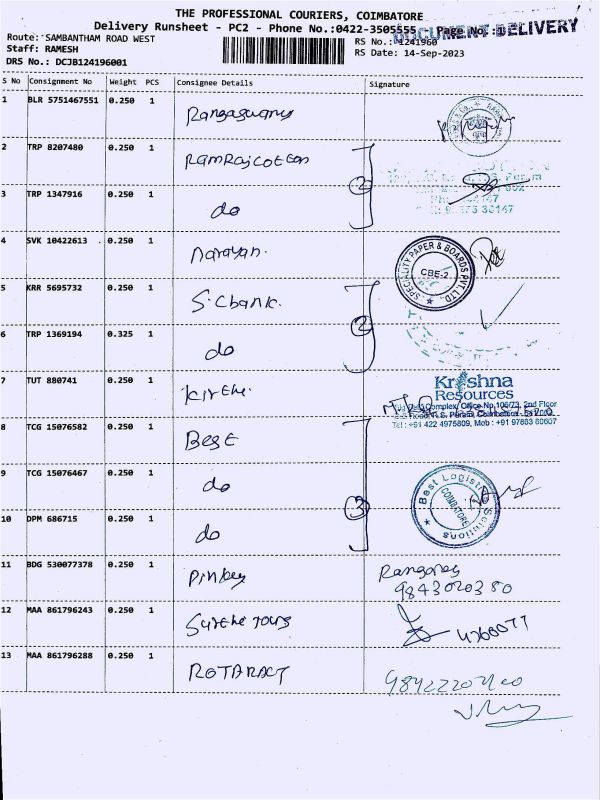 THE PROFESSIONAL COURIERS, COIMBATORE
Delivery Runsheet - PC2 - Phone No.:0422-3505555 Page No.:1
DOCUMENT DELIVERY
Route: SAMBANTHAM ROAD WEST
RS No.: 1241960
Staff: RAMESH
RS Date: 14-Sep-2023
DRS No.: DCJB124196001
S No Consignment No Weight PCS Consignee Details Signature
1 BLR 5751467551 0.250 1
2 TRP 8207480 0.250 1 RamRajcotton
3 TRP 1347916 0.250 1 do
2
4 SVK 10422613 0.250 1 Narayan.
SPECIALITY PAPER & BOARDS PVT. LTD.
CBE-2
5 KRR 5695732 0.250 1 S.C bank.
6 TRP 1369194 0.325 1 do
2
7 TUT 880741 0.250 1
Krishna
Resources
Complex, Office No.106/73, 2nd Floor
Tel : +91 422 4975809, Mob : +91 97863 60607
8 TCG 15076582 0.250 1 Best
9 TCG 15076467 0.250 1 do
3
Best Logistics Solutions
COIMBATORE
10 DPM 686715 0.250 1 do
11 BDG 530077378 0.250 1
9843020380
12 MAA 861796243 0.250 1
13 MAA 861796288 0.250 1 ROTARACT